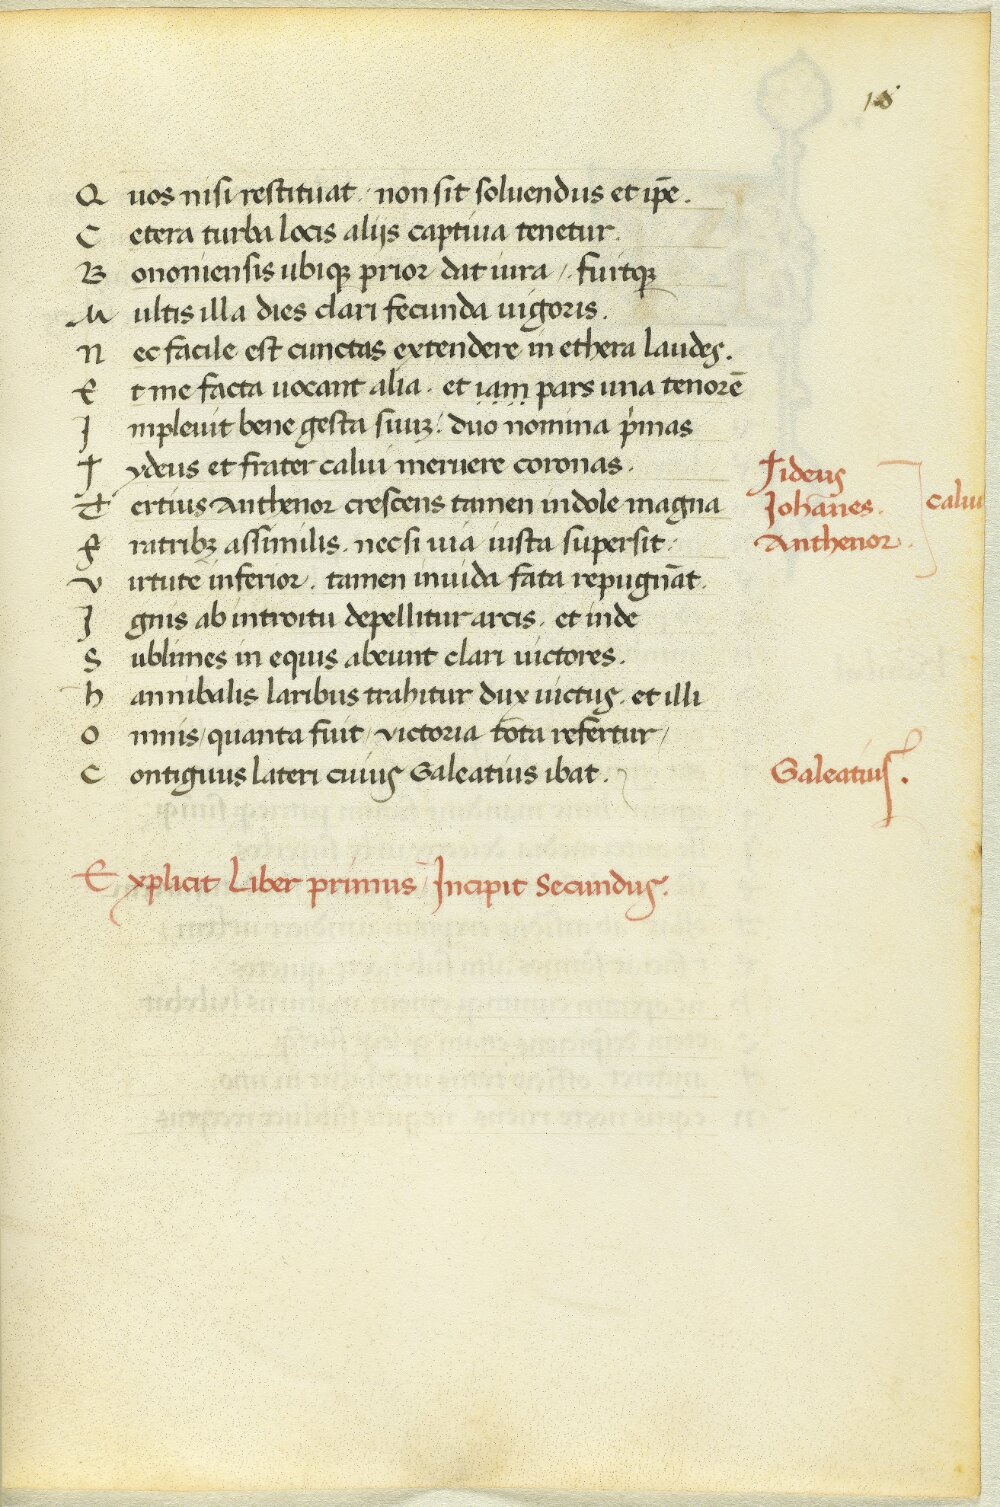 18
Quos nisi restituat / non sit soluendus et ip̄e.
Cetera turba locis alijs captiua tenetur.
Bononiensis ubiqꝫ prior dat iura / fuitqꝫ
Multis illa dies clari fecunda uigoris.
Nec facile est cunctas extendere in ethera laudes.
Et me facta uocant alia. et iam pars una tenorē
Impleuit bene gesta suuꝫ. duo nomina p'mas
Tydeus et frater calui meruere coronas.
Tertius Anthenor crescens tamen indole magna
Fratribꝫ assimilis. nec si uia iusta supersit.
Virtute inferior. tamen inuida fata repugnāt.
Ignis ab introitu depellitur arcis. et inde
Sublimes in equis abeunt clari uictores.
hannibalis laribus trahitur dux uictus. et illi
Omnis / quanta fuit / victoria tota refertur /
Contiguus lateri cuius Galeatius ibat.
Tideus
Johānes.
Anthenor.
calui
Galeatius.
Explicit Liber primus Incipit Secundus.